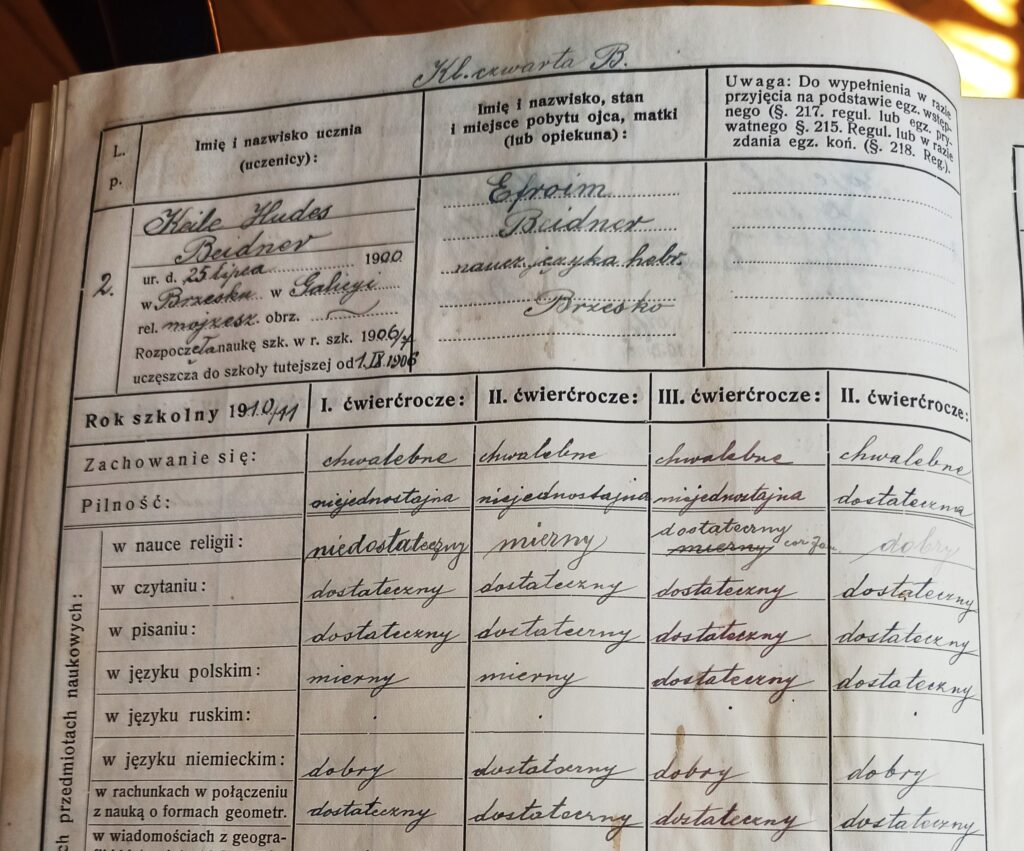 Kl. czwarta B.
L. p.
Imię i nazwisko ucznia
(uczenicy):
Imię i nazwisko, stan
i miejsce pobytu ojca, matki
(lub opiekuna):
Uwaga: Do wypełnienia w razie
przyjęcia na podstawie egz. wstęp-
nego (§. 217. regul. lub egz. pry-
watnego §. 215. Regul. lub w razie
zdania egz. koń. (§. 218. Reg.).
2.
Keile Hudes
Beidner
ur. d. 25 lipca 1900
w Brzesku w Galicyi
rel. mojżesz. obrz.
Rozpoczęła naukę szk. w r. szk. 1906/7
uczęszcza do szkoły tutejszej od 1.IX.1906
Efroim
Beidner
naucz. języka hebr.
Brzesko
Rok szkolny 1910/11 I. ćwierćrocze: II. ćwierćrocze: III. ćwierćrocze: II. ćwierćrocze:
Zachowanie się: chwalebne chwalebne chwalebne chwalebne
Pilność: niejednostajna niejednostajna niejednostajna dostateczna
ch przedmiotach naukowych:
w nauce religii: niedostateczny mierny dostateczny mierny dobry
w czytaniu: dostateczny dostateczny dostateczny dostateczny
w pisaniu: dostateczny dostateczny dostateczny dostateczny
w języku polskim: mierny mierny dostateczny dostateczny
w języku ruskim:
w języku niemieckim: dobry dostateczny dobry dobry
w rachunkach w połączeniu
z nauką o formach geometr. dostateczny dostateczny dostateczny dostateczny
w wiadomościach z geogra-